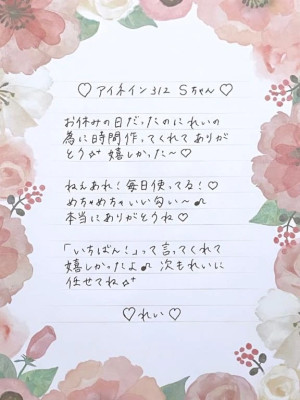 ♡ アイネイン312 Sちゃん ♡
お休みの日だったのにれいの
為に時間作ってくれてありが
とう☆ 嬉しかった〜♡
ねぇあれ！毎日使ってる！♡
めちゃめちゃいい匂い〜♪
本当にありがとうね♡
「いちばん！」って言ってくれて
嬉しかったよ♪ 次もれいに
任せてね☆
♡れい♡